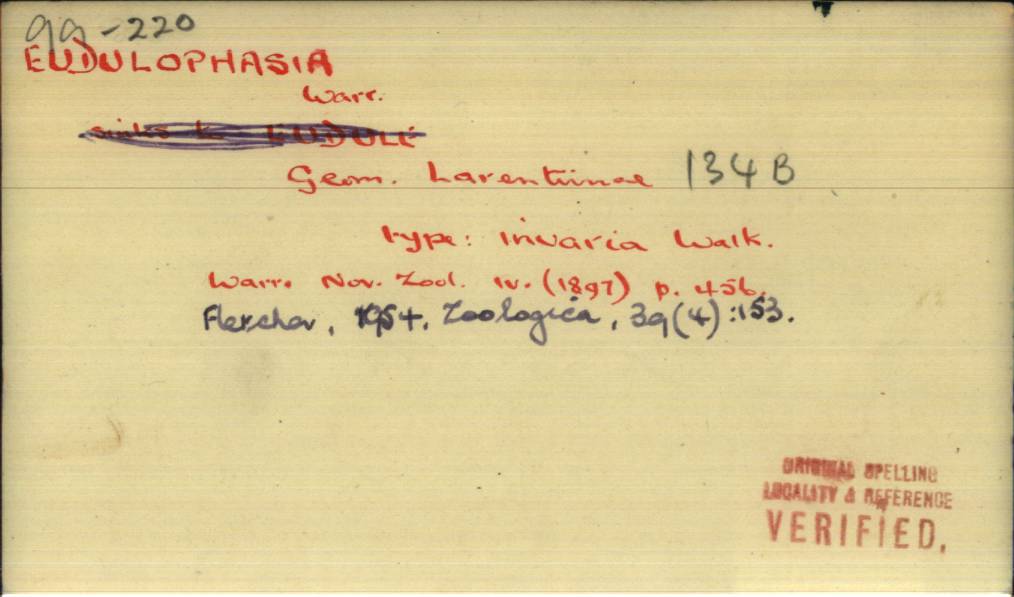 99-220
EUDULOPHASIA
Warr.
sinks to EUDULE
Geom. Larentiinae 134B
type: invaria Walk.
Warr. Nov. Zool. iv. (1897) p. 456.
Fletcher, 1954, Zoologica, 39(4):153.
ORIGINAL SPELLING
LOCALITY & REFERENCE
VERIFIED.